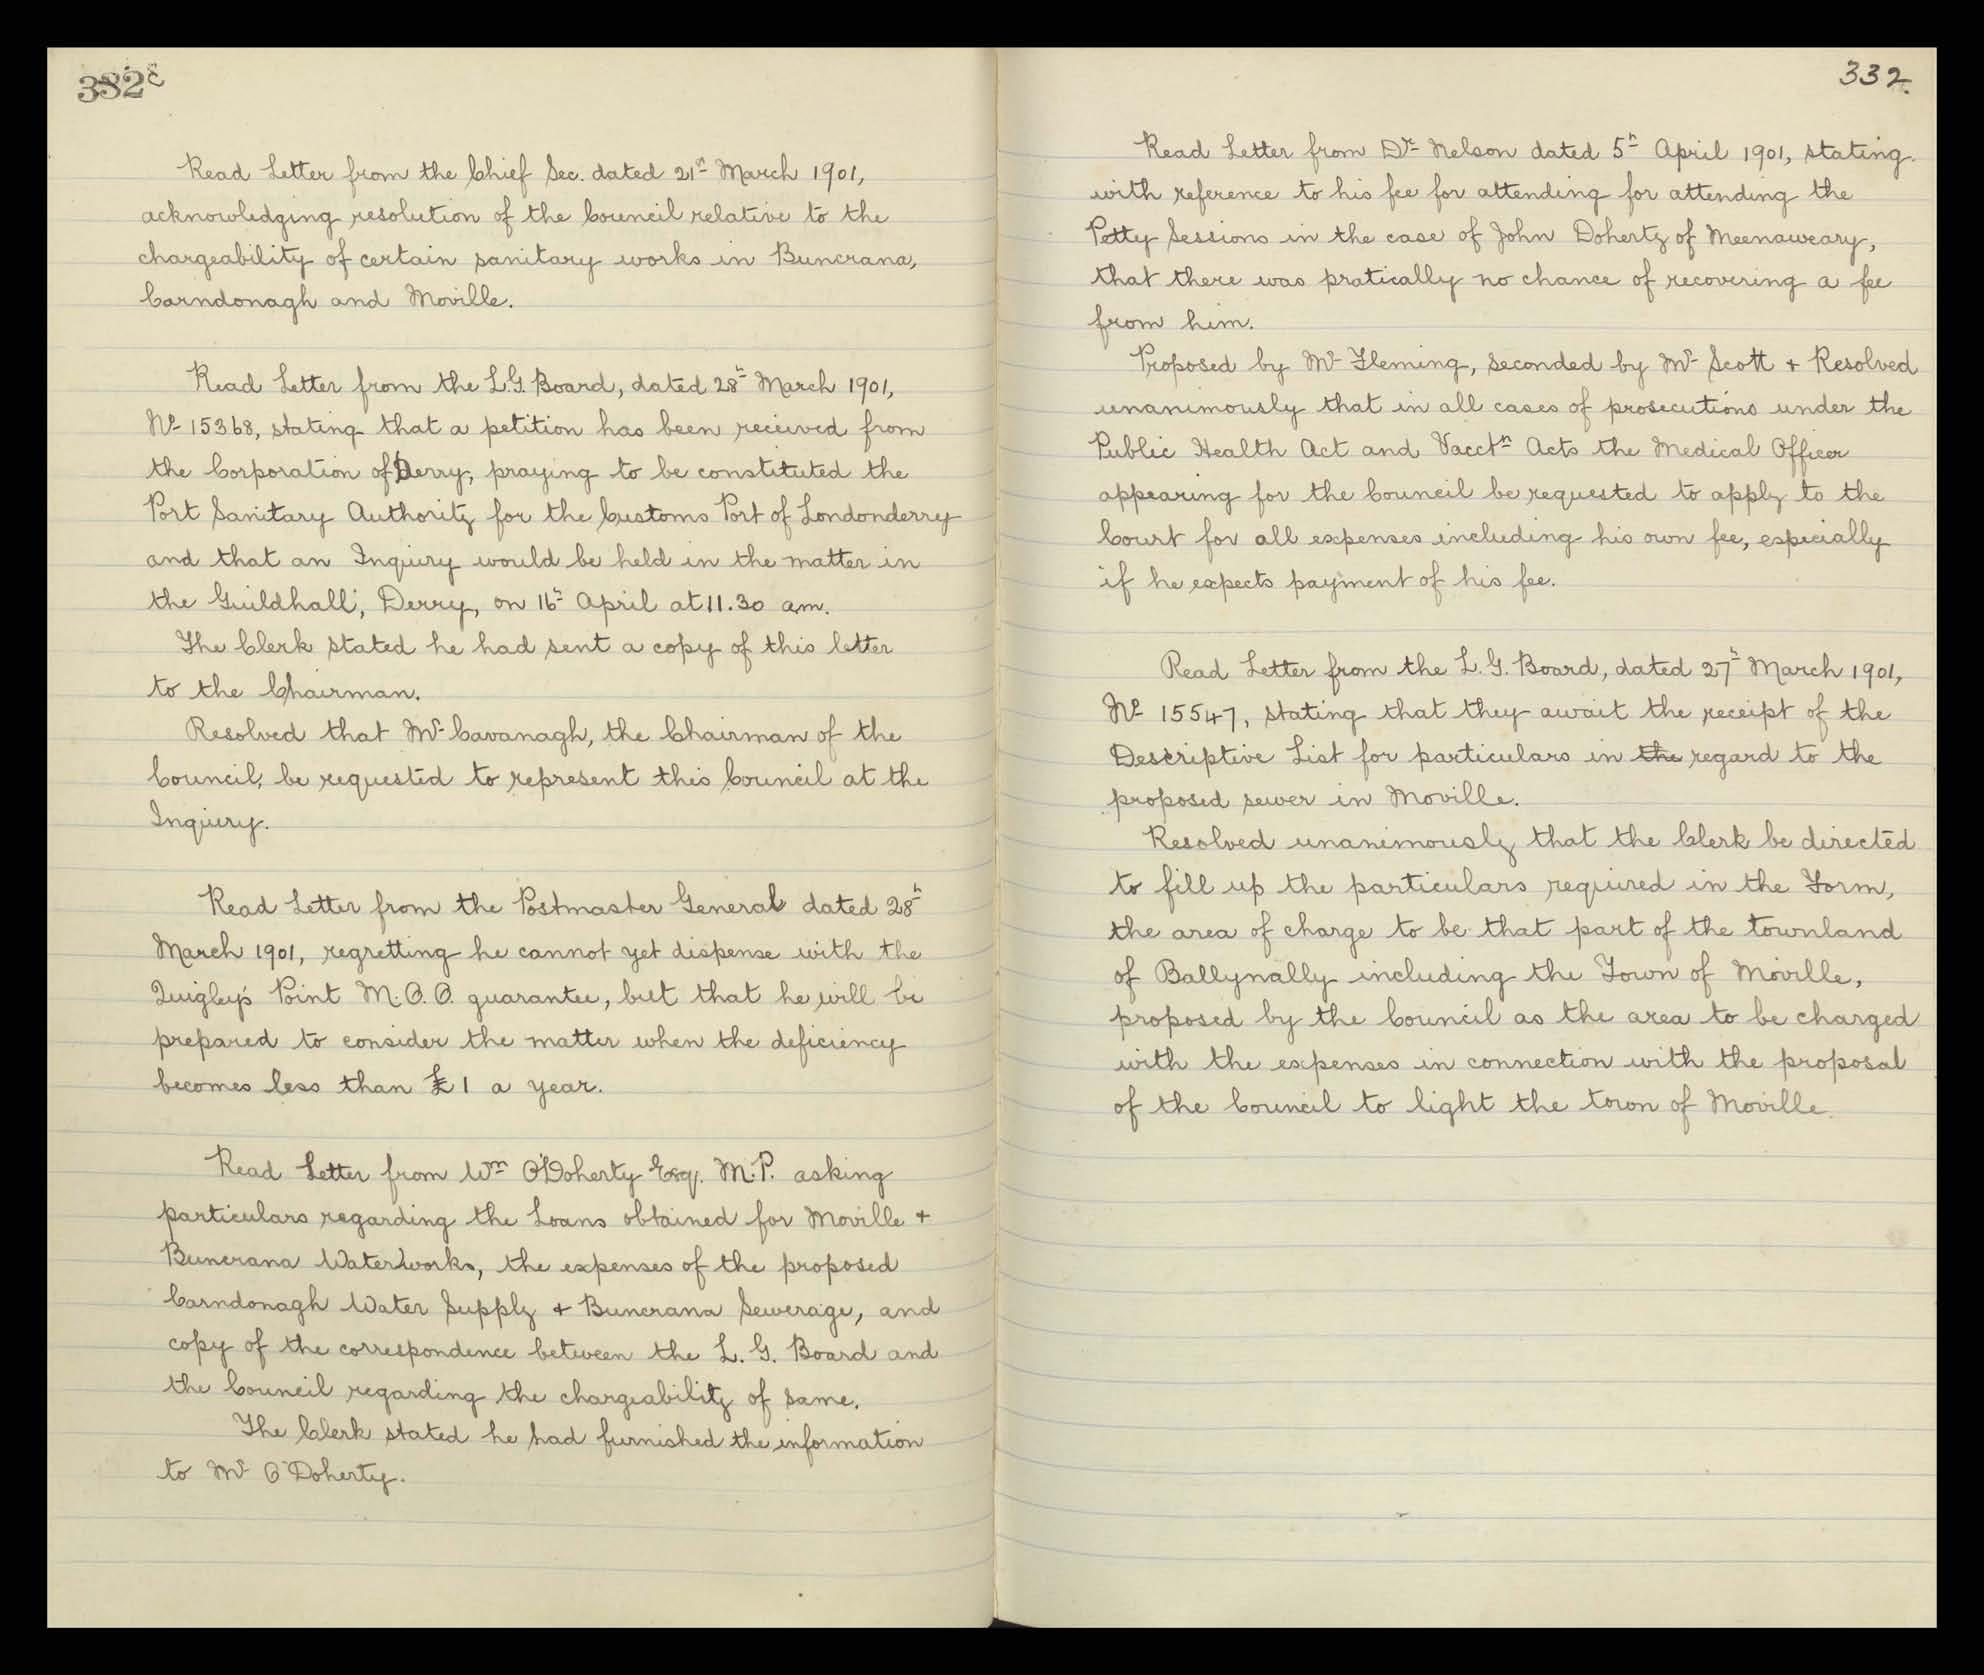 382c
Read Letter from the Chief Sec. dated 21st March 1901,
acknowledging resolution of the Council relative to the
chargeability of certain sanitary works in Buncrana,
Carndonagh and Moville.
Read Letter from the L.G. Board, dated 28th March 1901,
No 15368, stating that a petition has been received from
the Corporation of Derry, praying to be constituted the
Port Sanitary Authority for the Customs Port of Londonderry
and that an Inquiry would be held in the matter in
the Guildhall, Derry, on 16th April at 11.30 am.
The Clerk stated he had sent a copy of this letter
to the Chairman.
Resolved that Mr Cavanagh, the Chairman of the
Council, be requested to represent this Council at the
Inquiry.
Read Letter from the Postmaster General dated 28th
March 1901, regretting he cannot yet dispense with the
Quigley's Point M.O.O. guarantee, but that he will be
prepared to consider the matter when the deficiency
becomes less than £1 a year.
Read Letter from Wm O'Doherty Esq. M.P. asking
particulars regarding the Loans obtained for Moville +
Buncrana Waterworks, the expenses of the proposed
Carndonagh Water Supply + Buncrana Sewerage, and
copy of the correspondence between the L. G. Board and
the Council regarding the chargeability of same.
The Clerk stated he had furnished the information
to Mr O'Doherty.
332.
Read Letter from Dr Nelson dated 5th April 1901, stating
with reference to his fee for attending for attending the
Petty Sessions in the case of John Doherty of Meenaweary,
that there was pratically no chance of recovering a fee
from him.
Proposed by Mr Fleming, seconded by Mr Scott + Resolved
unanimously that in all cases of prosecutions under the
Public Health Act and Vacctn Acts the Medical Officer
appearing for the Council be requested to apply to the
Court for all expenses including his own fee, especially
if he expects payment of his fee.
Read Letter from the L. G. Board, dated 27th March 1901,
No 15547, stating that they await the receipt of the
Descriptive List for particulars in the regard to the
proposed sewer in Moville.
Resolved unanimously that the Clerk be directed
to fill up the particulars required in the Form,
the area of charge to be that part of the townland
of Ballynally including the Town of Moville,
proposed by the Council as the area to be charged
with the expenses in connection with the proposal
of the Council to light the town of Moville.